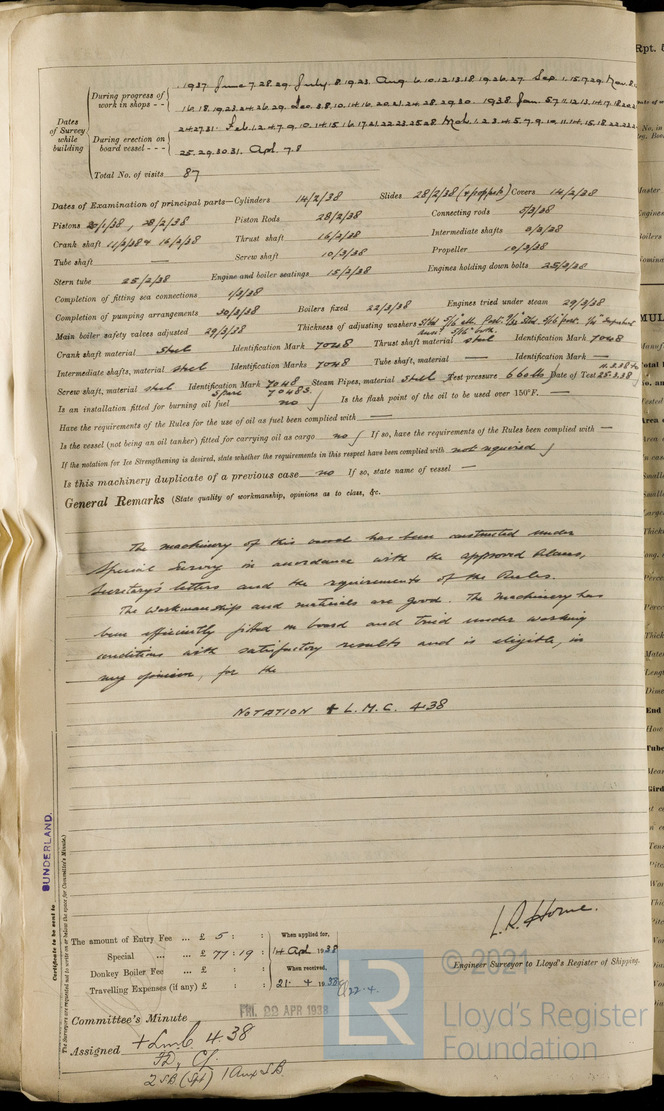 Rpt. 5
1937 June 7.28.29. July 8.19.23. Aug 6.10.12.13.18.19.26.27. Sep 1.15.17.29. Nov. 8.
During progress of work in shops - -
16.18.19.23.24.26.29. Dec. 3.8.10.14.16.20.21.24.28.29.30. 1938 Jan. 5.7.11.12.13.14.17.18.20
Dates of Survey while building
24.27.31. Feb. 1.2.4.7.9.10.14.15.16.17.21.22.23.25.28 Mch. 1.2.3.4.5.7.9.10.11.14.15.18.22.23
During erection on board vessel - - -
25.29.30.31. Apl. 7.8
Total No. of visits 87
Dates of Examination of principal parts—Cylinders 14/2/38 Slides 28/2/38 Covers 14/2/38
Pistons 28/2/38 Piston Rods 28/2/38 Connecting rods 5/3/38
Crank shaft 16/3/38 Thrust shaft 16/3/38 Intermediate shafts 9/3/38
Tube shaft — Screw shaft 10/3/38 Propeller 10/3/38
Stern tube 25/2/38 Engine and boiler seatings 15/3/38 Engines holding down bolts 25/3/38
Completion of fitting sea connections 1/3/38
Completion of pumping arrangements 30/3/38 Boilers fixed 22/3/38 Engines tried under steam 29/3/38
Main boiler safety valves adjusted 29/3/38 Thickness of adjusting washers
Crank shaft material Steel Identification Mark 7048 Thrust shaft material steel Identification Mark 7048
Intermediate shafts, material steel Identification Marks 7048 Tube shaft, material — Identification Mark —
Screw shaft, material steel Identification Mark 7048 Steam Pipes, material Steel Test pressure 660 lbs Date of Test 25.3.38
Spare 7048S.
Is an installation fitted for burning oil fuel no Is the flash point of the oil to be used over 150°F. —
Have the requirements of the Rules for the use of oil as fuel been complied with —
Is the vessel (not being an oil tanker) fitted for carrying oil as cargo no If so, have the requirements of the Rules been complied with —
If the notation for Ice Strengthening is desired, state whether the requirements in this respect have been complied with not required
Is this machinery duplicate of a previous case no If so, state name of vessel —
General Remarks (State quality of workmanship, opinions as to class, &c.
The machinery of this vessel has been constructed under
Special Survey in accordance with the approved Plans,
Secretary's letters and the requirements of the Rules.
The Workmanship and materials are good. The machinery has
been efficiently fitted on board and tried under working
conditions with satisfactory results and is eligible, in
my opinion, for the
NOTATION + L.M.C. 4.38
SUNDERLAND.
Certificate to be sent to
(The Surveyors are requested not to write on or below the space for Committee's Minute.)
L. R. Horne.
Engineer Surveyor to Lloyd's Register of Shipping.
The amount of Entry Fee ... £ 5 : : When applied for,
Special ... ... £ 77 : 19 : 14 Apl 1938
Donkey Boiler Fee ... £ : : When received,
Travelling Expenses (if any) £ : : 21. 4 1938
FRI. 22 APR 1938
Committee's Minute
Assigned + Lmc 4.38
FD, CL.
2 SB (Spt) 1 Aux SB.
LR
© 2021
Lloyd's Register
Foundation